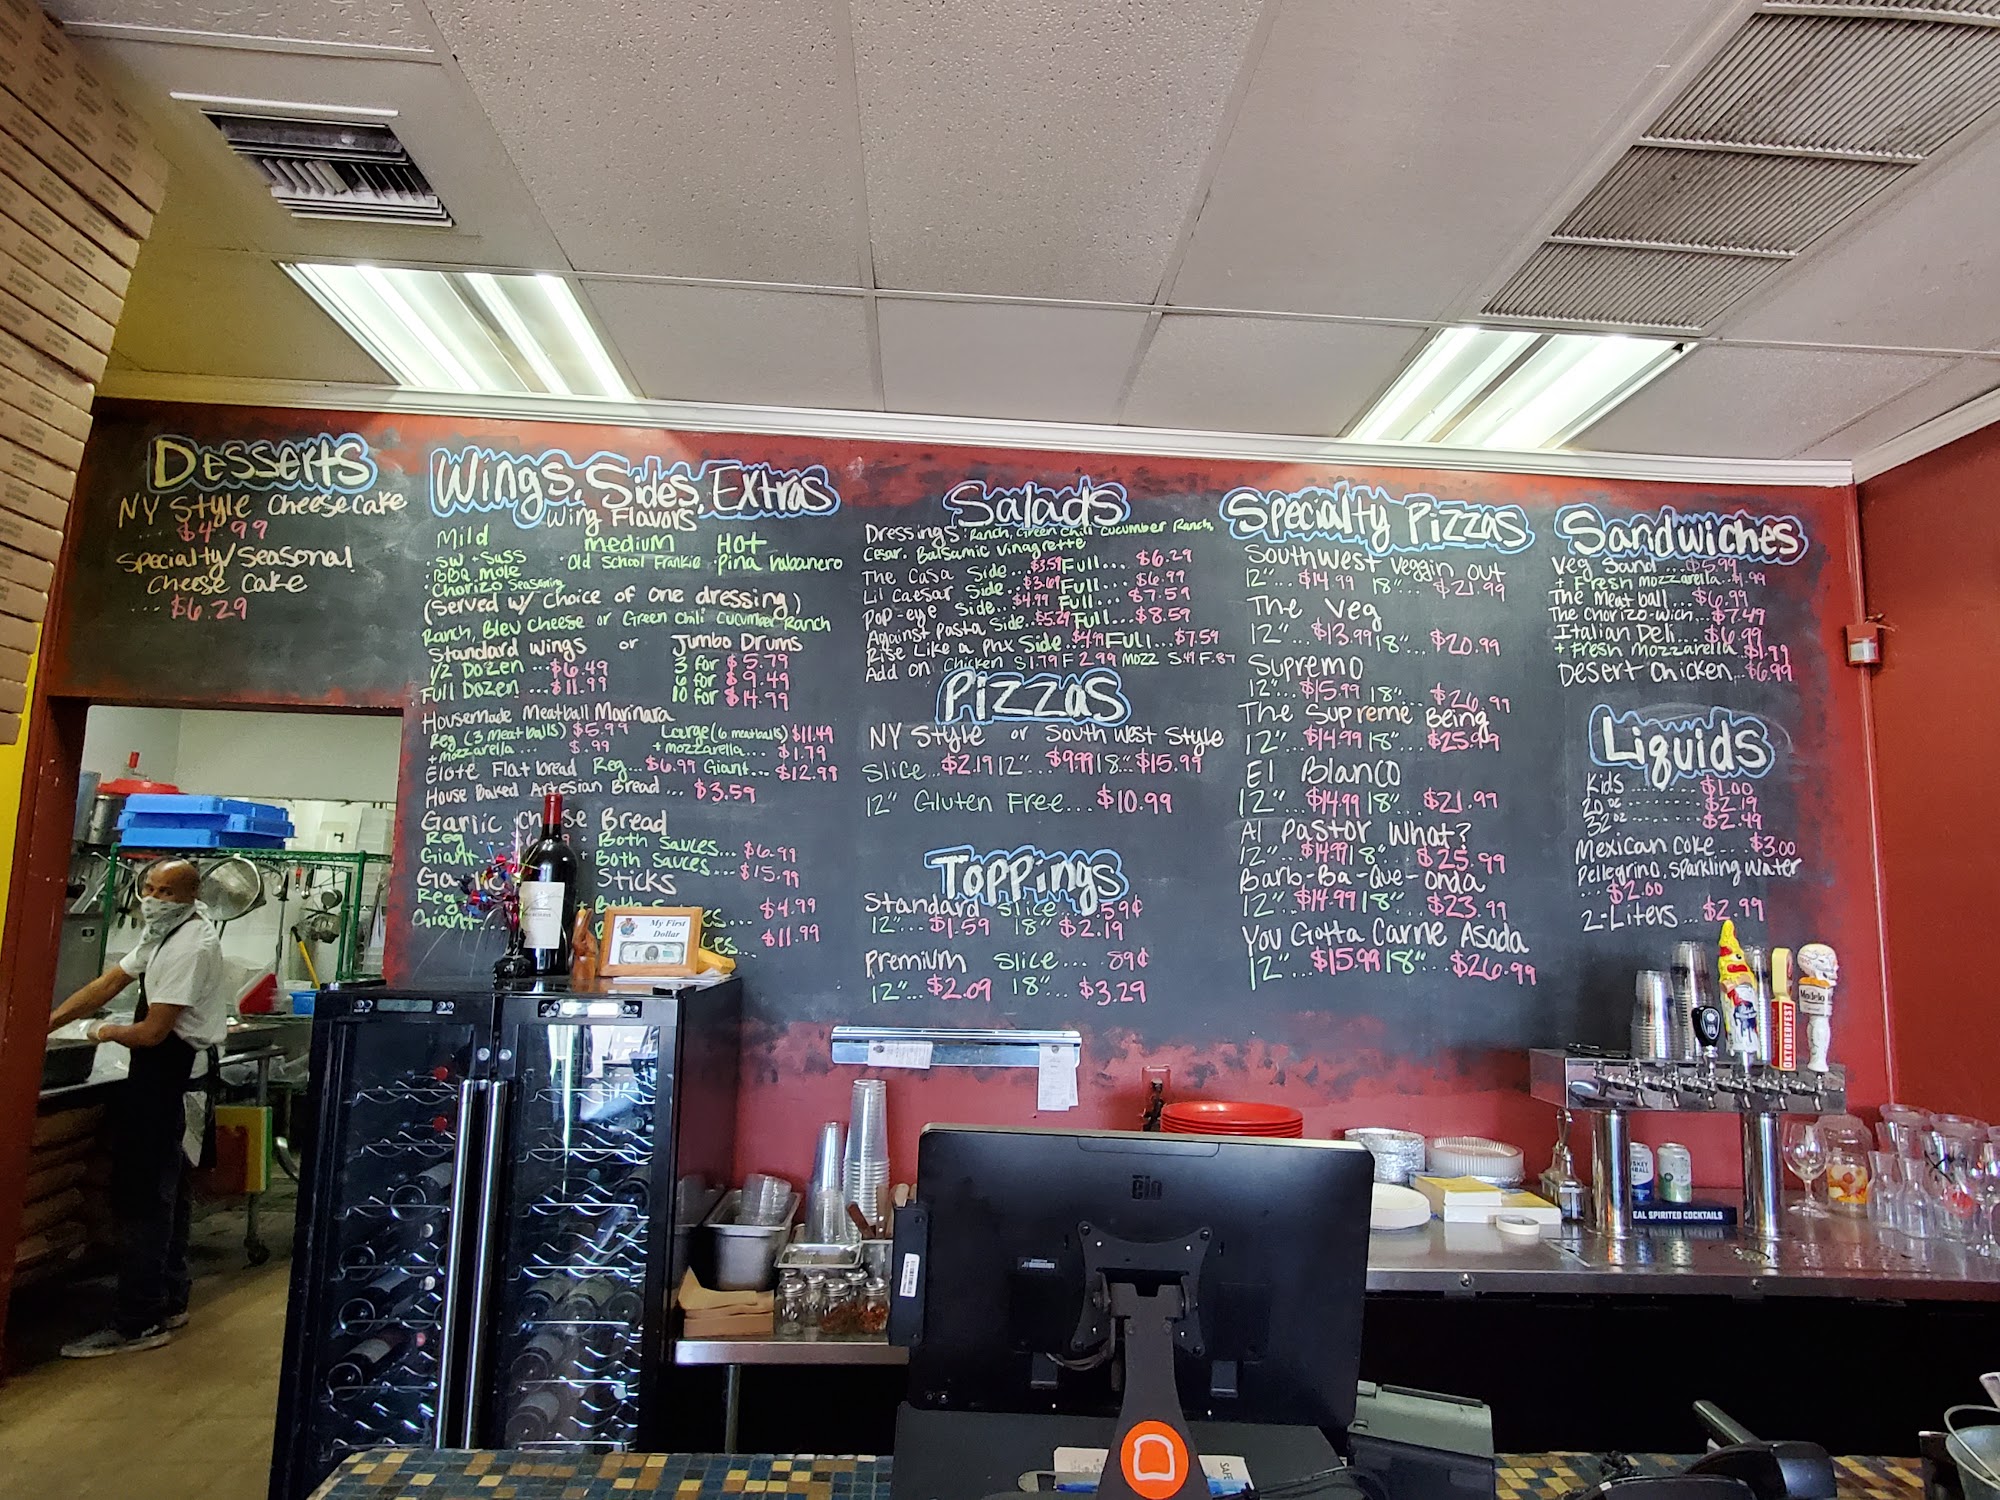 Desserts
NY Style Cheesecake
... $4.99
Specialty/Seasonal
Cheese Cake
... $6.29
Wings, Sides, Extras
Wing Flavors
Mild Medium Hot
· SW + Suss · Old School Frankie · Pina Habanero
· BBQ Mole
· Chorizo Seasoning
(Served w/ choice of one dressing)
Ranch, Bleu Cheese or Green Chili Cucumber Ranch
Standard Wings or Jumbo Drums
1/2 Dozen ... $6.49 3 for $5.79
Full Dozen ... $11.99 6 for $9.49
10 for $14.99
Housemade Meatball Marinara
Reg (3 meatballs) $5.99 Large (6 meatballs) $11.49
+ mozzarella ... $.99 + mozzarella ... $1.79
Elote Flatbread Reg... $6.99 Giant... $12.99
House Baked Artesian Bread ... $3.59
Garlic Cheese Bread
Reg + Both Sauces... $6.99
Giant + Both Sauces... $15.99
Sticks
Reg $4.99
Giant... $11.99
My First
Dollar
Salads
Dressings: Ranch, Green Chili Cucumber Ranch,
Cesar, Balsamic Vinagrette
The Casa Side...$3.59 Full... $6.29
Lil Caesar Side...$3.69 Full... $6.99
Pop-eye Side...$4.99 Full... $7.59
Against Pasta Side..$5.29 Full... $8.59
Rise Like a Phx Side...$4.99 Full... $7.59
Add on Chicken S 1.79 F 2.99 Mozz S.49 F.87
Pizzas
NY Style or South West Style
Slice...$2.19 12"...$9.99 18"...$15.99
12" Gluten Free... $10.99
Toppings
Standard Slice ... 59¢
12"...$1.59 18"...$2.19
Premium Slice... 89¢
12"...$2.09 18"... $3.29
Specialty Pizzas
Southwest Veggin Out
12"...$14.99 18"...$21.99
The Veg
12"...$13.99 18"...$20.99
Supremo
12"...$15.99 18"...$26.99
The Supreme Being
12"...$14.99 18"...$25.99
El Blanco
12"...$14.99 18"...$21.99
Al Pastor What?
12"...$14.99 18"...$25.99
Barb-Ba-Que-Onda
12"...$14.99 18"...$23.99
You Gotta Carne Asada
12"...$15.99 18"...$26.99
Sandwiches
Veg Sand ...$5.99
+ Fresh Mozzarella...$1.99
The Meatball...$6.99
The Chorizo-wich...$7.49
Italian Deli...$6.99
+ Fresh mozzarella $1.99
Desert Chicken...$6.99
Liquids
Kids ........ $1.00
20 oz ........ $2.19
32 oz ........ $2.49
Mexican Coke...$3.00
Pellegrino, Sparkling Water
... $2.00
2-Liters ...$2.99
OKTOBERFEST
Modelo
EAL SPIRITED COCKTAILS
elo
SAFE